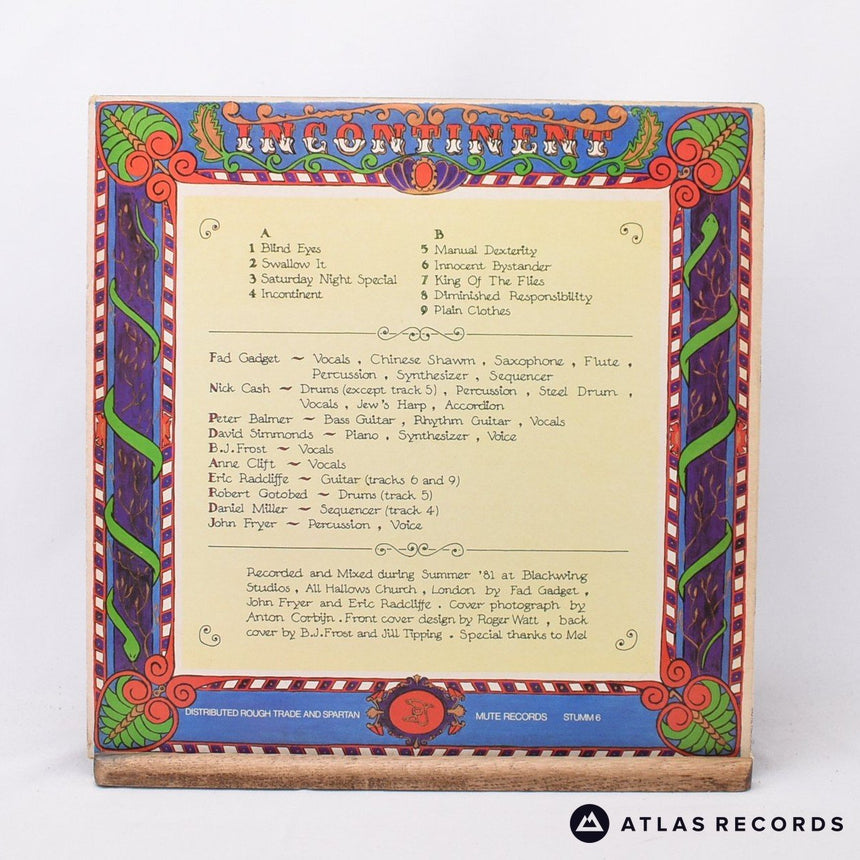 INCONTINENT
A
1 Blind Eyes
2 Swallow It
3 Saturday Night Special
4 Incontinent
B
5 Manual Dexterity
6 Innocent Bystander
7 King Of The Flies
8 Diminished Responsibility
9 Plain Clothes
Fad Gadget ~ Vocals , Chinese Shawm , Saxophone , Flute ,
Percussion , Synthesizer , Sequencer
Nick Cash ~ Drums (except track 5) , Percussion , Steel Drum ,
Vocals , Jew's Harp , Accordion
Peter Balmer ~ Bass Guitar , Rhythm Guitar , Vocals
David Simmonds ~ Piano , Synthesizer , Voice
B.J.Frost ~ Vocals
Anne Clift ~ Vocals
Eric Radcliffe ~ Guitar (tracks 6 and 9)
Robert Gotobed ~ Drums (track 5)
Daniel Miller ~ Sequencer (track 4)
John Fryer ~ Percussion , Voice
Recorded and Mixed during Summer '81 at Blackwing
Studios , All Hallows Church , London by Fad Gadget ,
John Fryer and Eric Radcliffe . Cover photograph by
Anton Corbijn . Front cover design by Roger Watt , back
cover by B.J.Frost and Jill Tipping . Special thanks to Mel
DISTRIBUTED ROUGH TRADE AND SPARTAN
MUTE RECORDS STUMM 6
ATLAS RECORDS